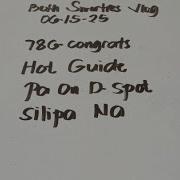 Beth Smartres Vlog
06-15-25
78G congrats
Hot Guide
Pa On D-Spot
Silipa Na